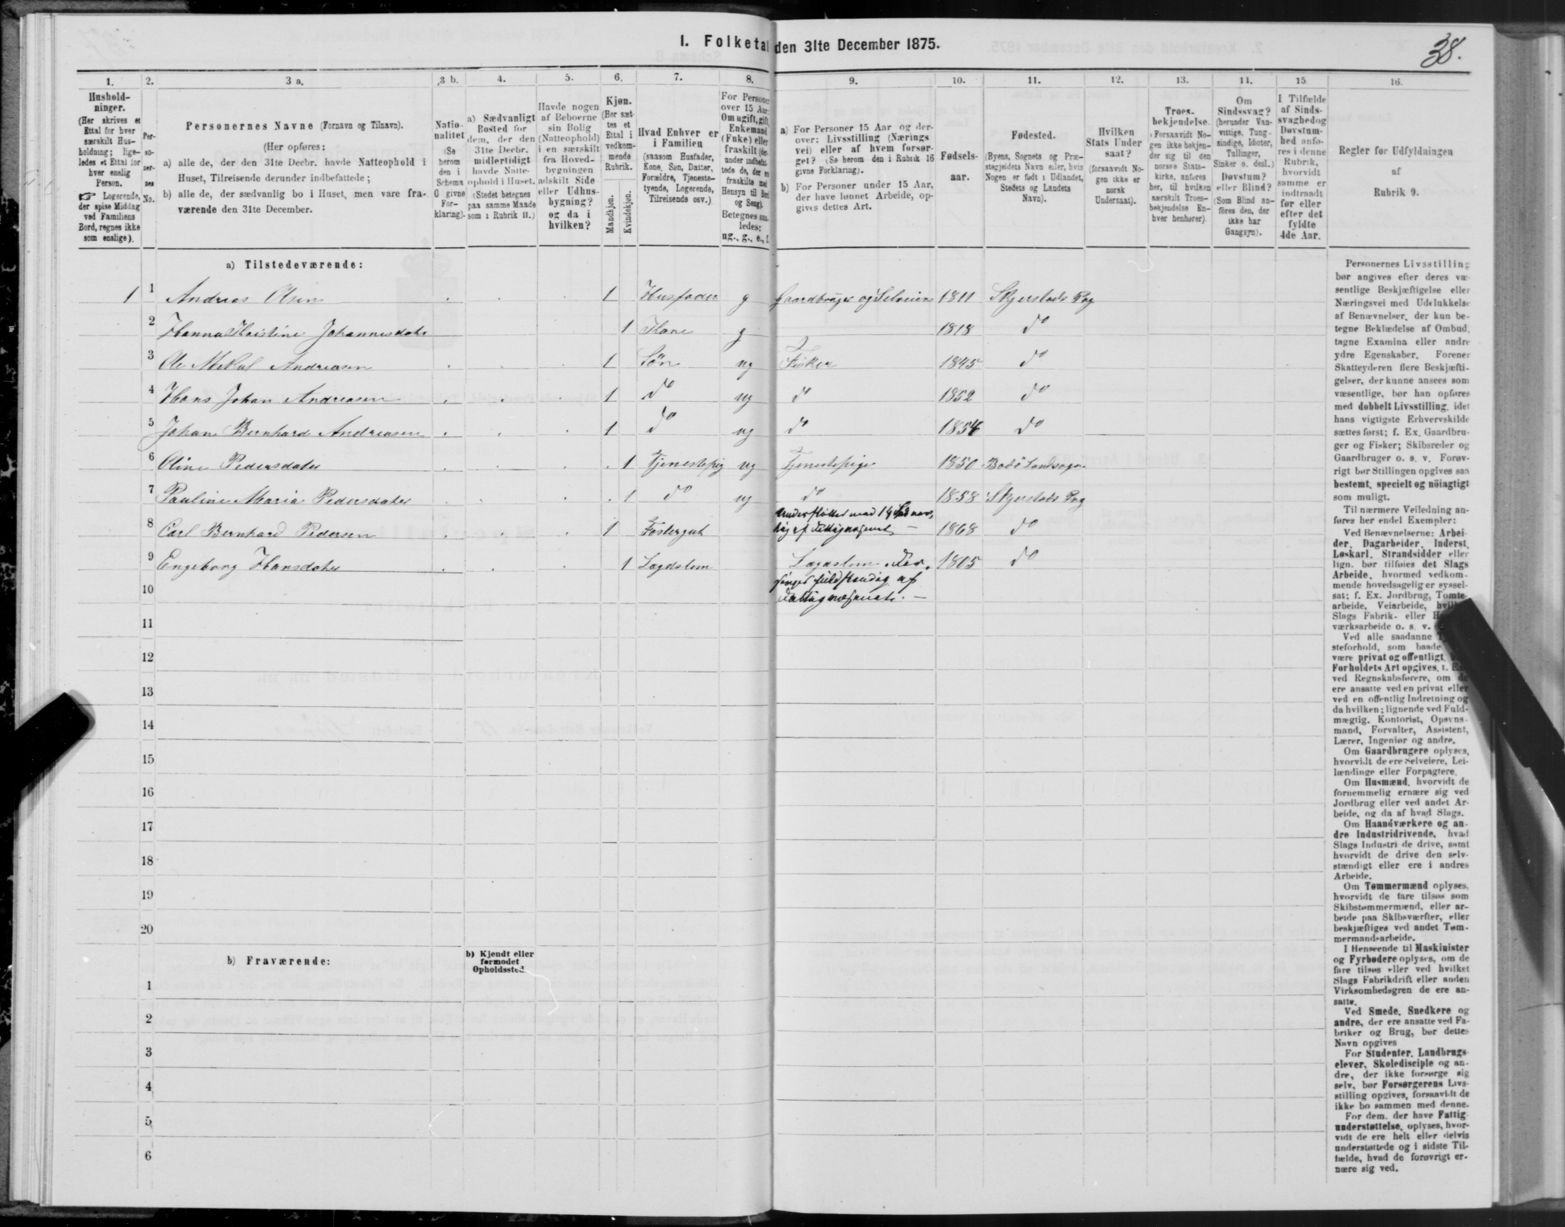 I. Folketal den 31te December 1875.
38.
1.
2.
3 a.
3 b.
4.
5.
6.
7.
8.
9.
10.
11.
12.
13.
14.
15
16.
Hushold-
ninger.
(Her skrives et
Ettal for hver
særskilt Hus-
holdning; lige-
ledes et Ettal for
hver enslig
Person.
Logerende,
der spise Middag
ved Familiens
Bord, regnes ikke
som enslige).
Per-
so-
ner-
nes
No.
Personernes Navne (Fornavn og Tilnavn).
(Her opføres:
a) alle de, der den 31te Decbr. havde Natteophold i
Huset, Tilreisende derunder indbefattede;
b) alle de, der sædvanlig bo i Huset, men vare fra-
værende den 31te December.
Natio-
nalitet
(Se
herom
den i
Schema
G givne
For-
klaring).
a) Sædvanligt
Bosted for
dem, der den
31te Decbr.
midlertidigt
havde Natte-
ophold i Huset.
(Stedet betegnes
paa samme Maade
som i Rubrik 11.)
Havde nogen
af Beboerne
sin Bolig
(Natteophold)
i en særskilt
fra Hoved-
bygningen
adskilt Side
eller Udhus-
bygning?
og da i
hvilken?
Kjøn.
(Her sæt-
tes et
Ettal i
vedkom-
mende
Rubrik.
Mandkjøn.
Kvindekjøn.
Hvad Enhver er
i Familien
(saasom Husfader,
Kone, Søn, Datter,
Forældre, Tjeneste-
tyende, Logerende,
Tilreisende osv.)
For Personer
over 15 Aar:
Om ugift, gift,
Enkemand
(Enke) eller
fraskilt
Betegnes saa-
ledes:
ug., g., e., f.
a) For Personer 15 Aar og der-
over: Livsstilling (Nærings
vei) eller af hvem forsør-
get? (Se herom den i Rubrik 16
givne Forklaring).
b) For Personer under 15 Aar,
der have lønnet Arbeide, op-
gives dettes Art.
Fødsels-
aar.
Fødested.
(Byens, Sognets og Præ-
stegjeldets Navn eller, hvis
Nogen er født i Udlandet,
Stedets og Landets
Navn).
Hvilken
Stats Under
saat?
(forsaavidt No-
gen ikke er
norsk
Undersaat).
Troes-
bekjendelse.
(Forsaavidt No-
gen ikke bekjen-
der sig til den
norske Stats-
kirke, anføres
her, til hvilken
særskilt Troes-
bekjendelse En-
hver henhører).
Om
Sindssvag?
(herunder Van-
vittige, Tung-
sindige, Idioter,
Tullinger,
Sinker o. desl.)
Døvstum?
eller Blind?
(Som Blind an-
føres den, der
ikke har
Gangsyn).
I Tilfælde
af Sinds-
svaghed og
Døvstum-
hed anfø-
res i denne
Rubrik,
hvorvidt
samme er
indtraadt
før eller
efter det
fyldte
4de Aar.
Regler for Udfyldningen
af
Rubrik 9.
a) Tilstedeværende:
1 1 Andreas Olsen 1 Husfader g Gaardbruger og Selveier 1811 Skjerstads Pgj
2 Hanna Kristine Johannesdatr 1 Kone g 1818 do
3 Ole Mikal Andreasen 1 Søn ug Fisker 1845 do
4 Hans Johan Andreasen 1 do ug do 1852 do
5 Johan Bernhard Andreasen 1 do ug do 1854 do
6 Oline Pedersdater 1 Tjenestepig ug Tjenestepige 1850 Bodø Landsogn
7 Pauline Marie Pedersdater 1 do ug do 1858 Skjerstads Pgj
8 Carl Bernhard Pedersen 1 Fostergut
af Fattigvæsenet 1868 do
9 Engeborg Hansdater 1 Lægdslem Lægdslem. For- 1805 do
sørges fuldstændig af
Fattigvæsenet.
10
11
12
13
14
15
16
17
18
19
20
b) Fraværende:
b) Kjendt eller
formodet
Opholdssted.
1
2
3
4
5
6
Personernes Livsstilling
bør angives efter deres væ-
sentlige Beskjæftigelse eller
Næringsvei med Udelukkelse
af Benævnelser, der kun be-
tegne Beklædelse af Ombud,
tagne Examina eller andre
ydre Egenskaber. Forener
Skatteyderen flere Beskjæfti-
gelser, der kunne ansees som
væsentlige, bør han opføres
med dobbelt Livsstilling, idet
hans vigtigste Erhvervskilde
sættes først; f. Ex. Gaardbru-
ger og Fisker; Skibsreder og
Gaardbruger o. s. v. Forøv-
rigt bør Stillingen opgives saa
bestemt, specielt og nöiagtigt
som muligt.
Til nærmere Veiledning an-
føres her endel Exempler:
Ved Benævnelserne: Arbei-
der, Dagarbeider, Inderst,
Løskarl, Strandsidder eller
lign. bør tilføies det Slags
Arbeide, hvormed vedkom-
mende hovedsagelig er syssel-
sat; f. Ex. Jordbrug, Tomte-
arbeide, Veiarbeide,
Slags Fabrik- eller
værksarbeide o. s. v.
Ved alle saadanne
steforhold, som baade
være privat og offentligt,
Forholdets Art opgives,
ved Regnskabsførere, om de
ere ansatte ved en privat eller
ved en offentlig Indretning og
da hvilken; lignende ved Fuld-
mægtig, Kontorist, Opsyns-
mand, Forvalter, Assistent,
Lærer, Ingeniør og andre.
Om Gaardbrugere oplyses,
hvorvidt de ere Selveiere, Lei-
lændinge eller Forpagtere.
Om Husmænd, hvorvidt de
fornemmelig ernære sig ved
Jordbrug eller ved andet Ar-
beide, og da af hvad Slags.
Om Haandværkere og an-
dre Industridrivende, hvad
Slags Industri de drive, samt
hvorvidt de drive den selv-
stændigt eller ere i andres
Arbeide.
Om Tømmermænd oplyses,
hvorvidt de fare tilsøs som
Skibstømmermænd, eller ar-
beide paa Skibsværfter, eller
beskjæftiges ved andet Tøm-
mermandsarbeide.
I Henseende til Maskinister
og Fyrbødere oplyses, om de
fare tilsøs eller ved hvilket
Slags Fabrikdrift eller anden
Virksomhedsgren de ere an-
satte.
Ved Smede, Snedkere og
andre, der ere ansatte ved Fa-
briker og Brug, bør dettes
Navn opgives
For Studenter, Landbrugs-
elever, Skoledisciple og an-
dre, der ikke forsørge sig
selv, bør Forsørgerens Livs-
stilling opgives, forsaavidt de
ikke bo sammen med denne.
For dem, der have Fattig-
understøttelse, oplyses, hvor-
vidt de ere helt eller delvis
understøttede og i sidste Til-
fælde, hvad de forøvrigt er-
nære sig ved.